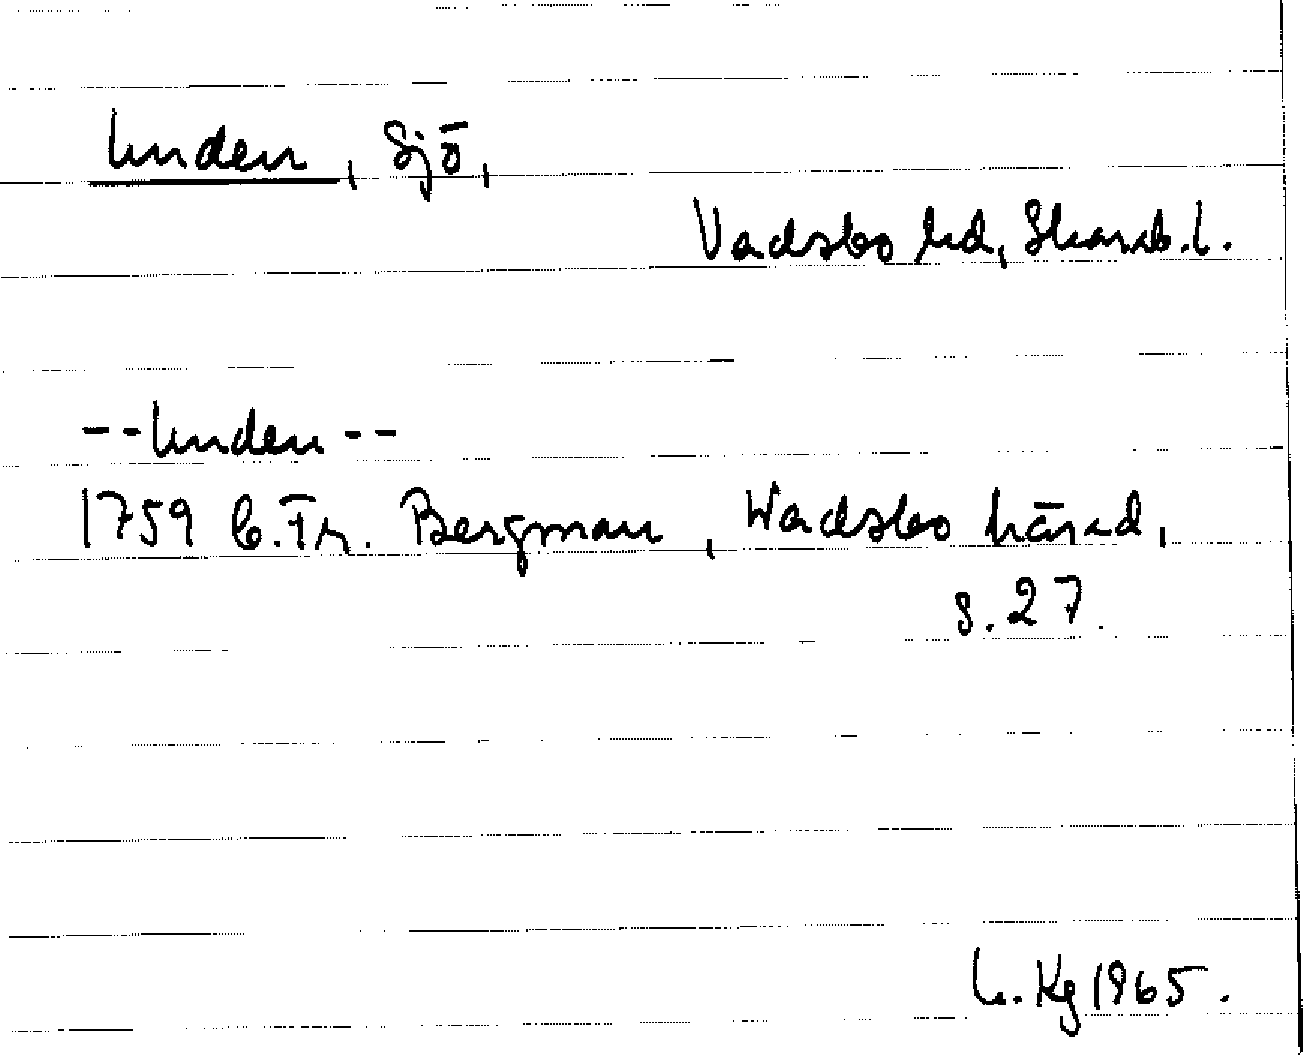 Unden, Sjö,
Vadsbo hd, Skarab.l.
--Unden--
1759 C.Fr. Bergman, Wadsbo härad,
s. 27.
L. Kg 1965.